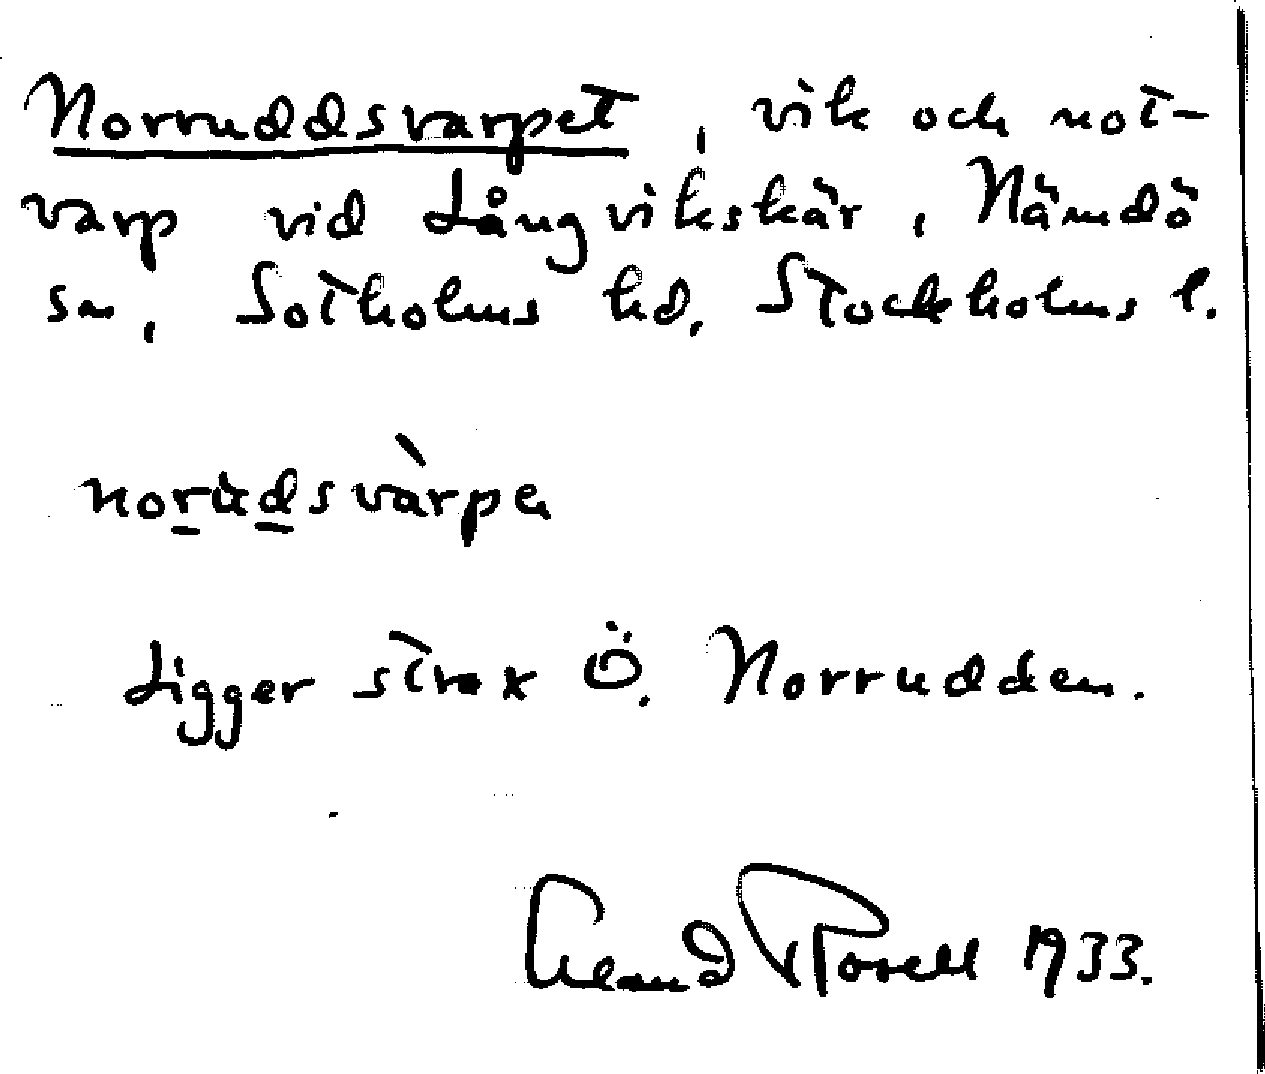 Norruddsvarpet, vik och not-
varp vid Långvikskär, Nämdö
sn, Sotholms hd, Stockholms l.
norùdsvàrpe
Ligger strax Ö. Norrudden.
1933.